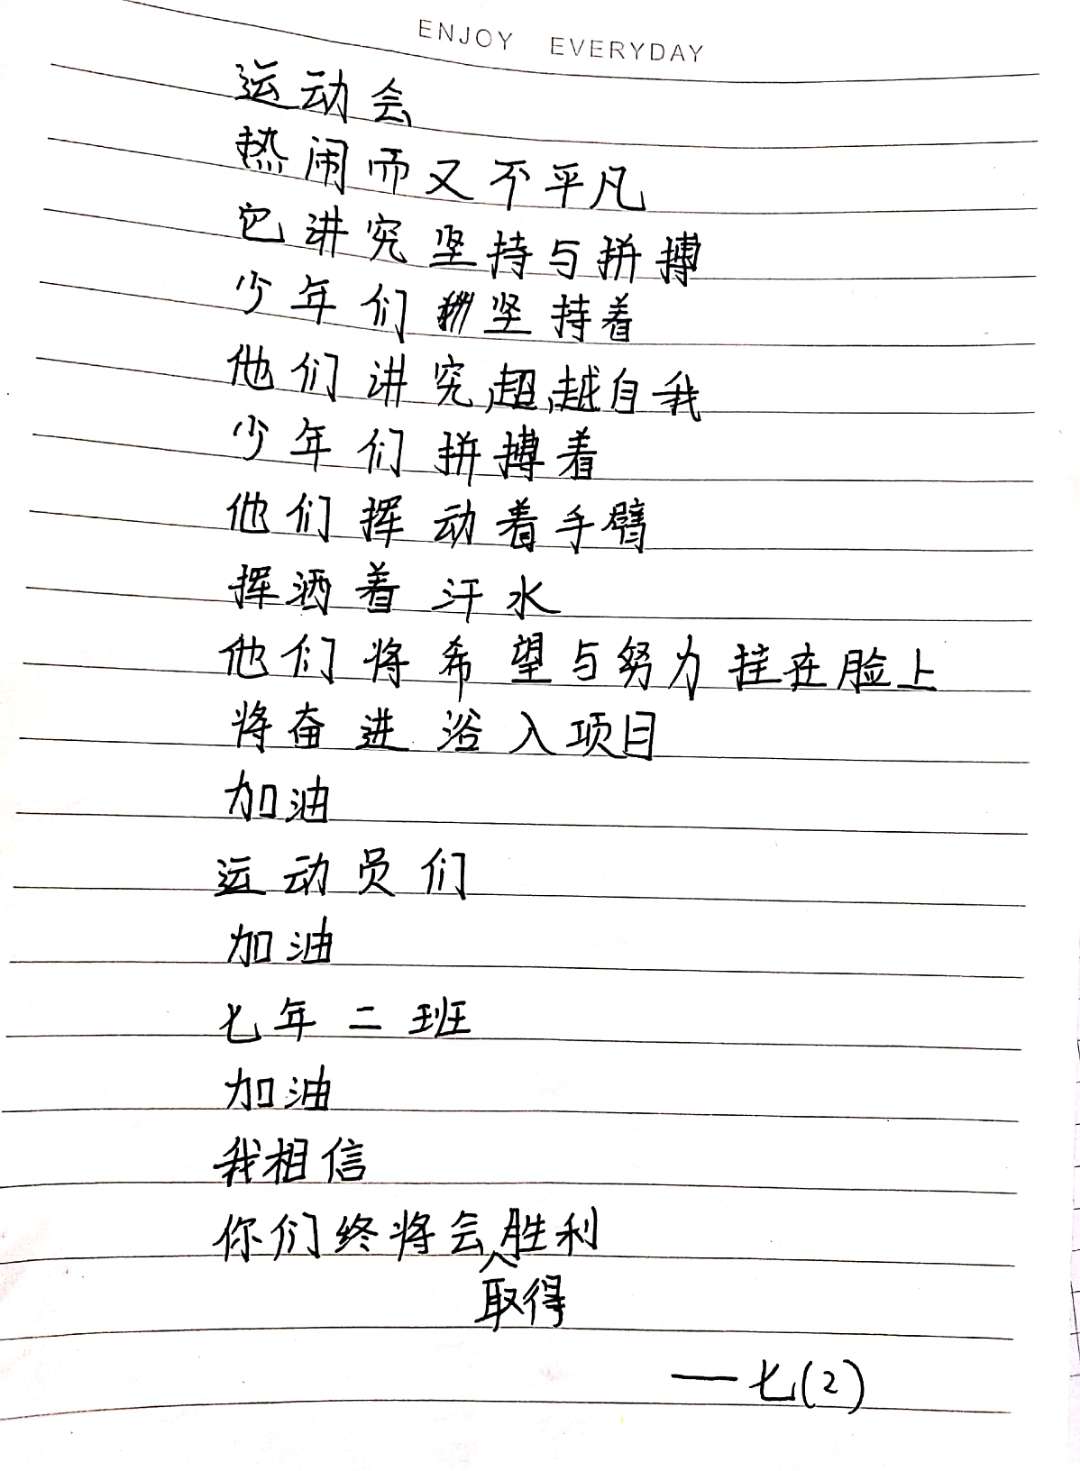 ENJOY EVERYDAY
运动会
热闹而又不平凡
它讲究坚持与拼搏
少年们坚持着
他们讲究超越自我
少年们拼搏着
他们挥动着手臂
挥洒着汗水
他们将希望与努力挂在脸上
将奋进浴入项目
加油
运动员们
加油
七年二班
加油
我相信
你们终将会胜利
取得
——七(2)